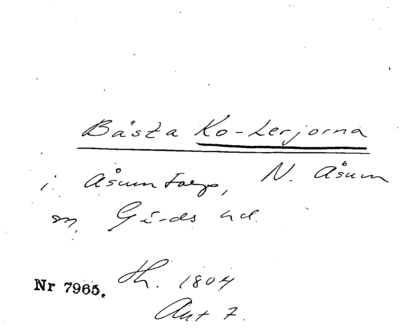 Bästa Ko-Lerjorna
i Åsumtorp, N. Åsum
sn, Gärds hd.
Nr 7965. Th. 1804
Ant 7.